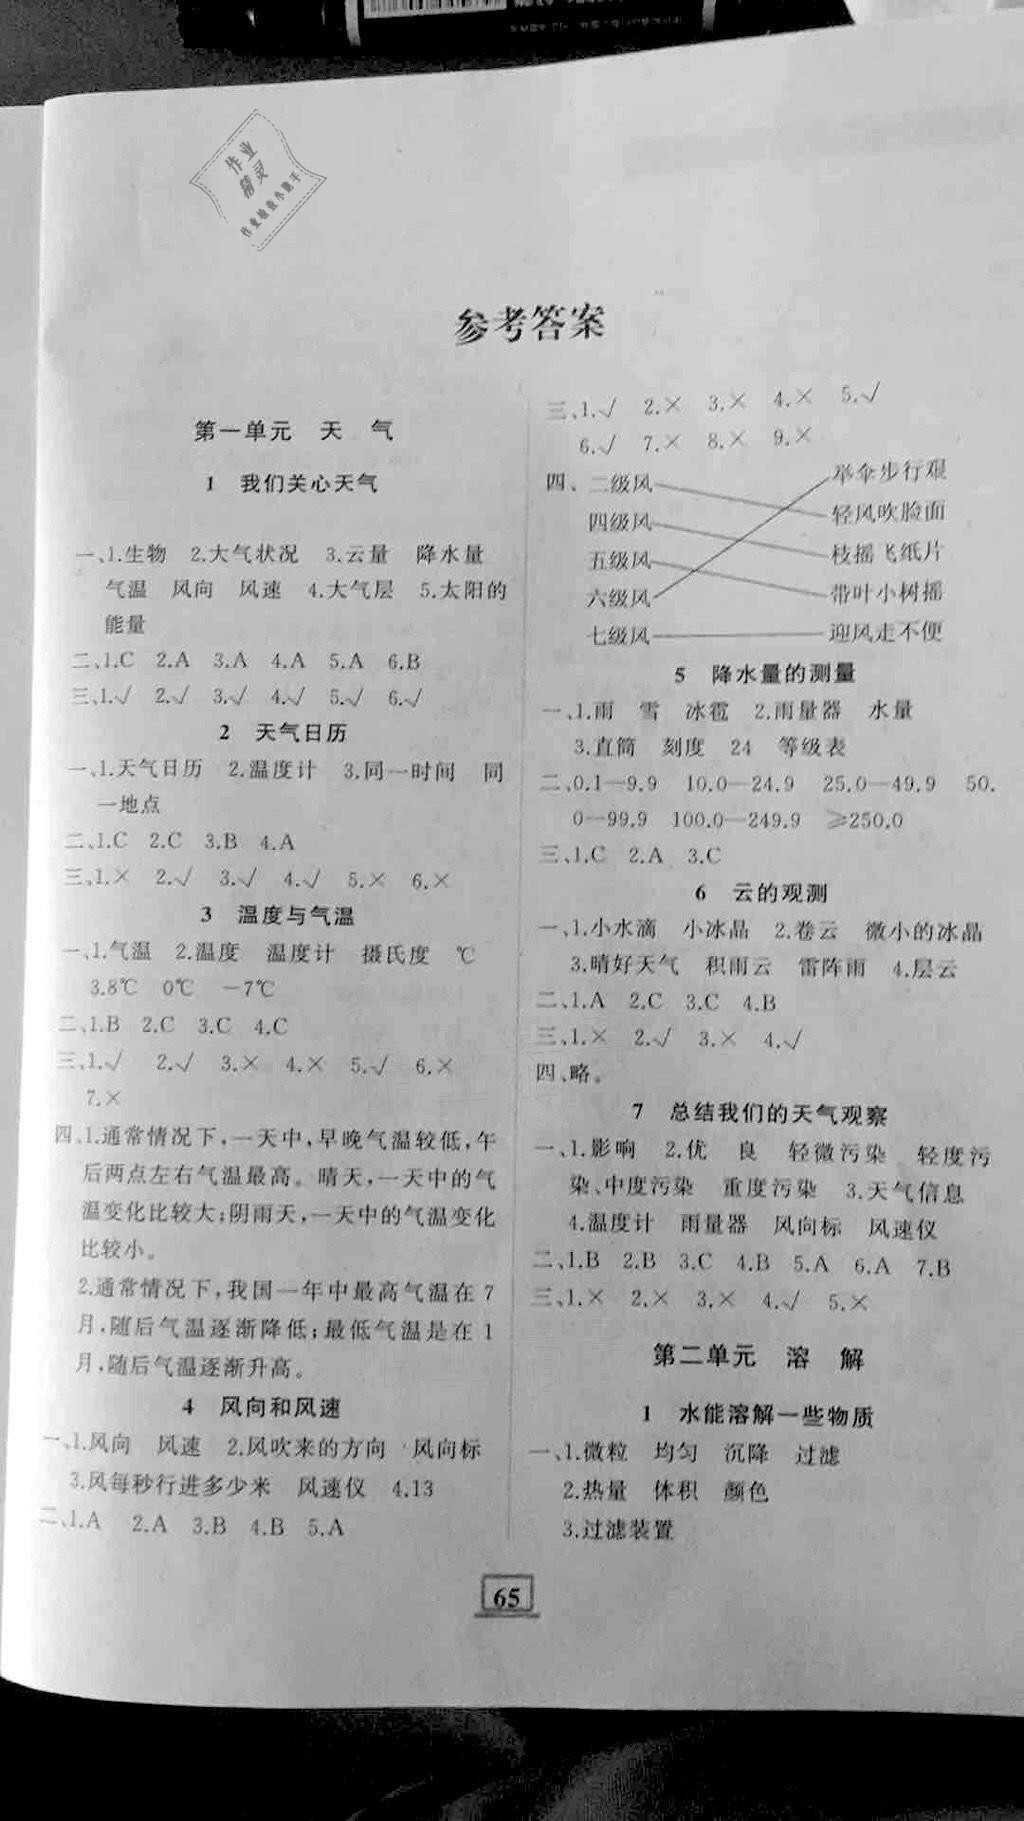 作业
精灵
作业检查小助手
参考答案
第一单元 天 气
1 我们关心天气
一、1.生物 2.大气状况 3.云量 降水量
气温 风向 风速 4.大气层 5.太阳的
能量
二、1.C 2.A 3.A 4.A 5.A 6.B
三、1.√ 2.√ 3.√ 4.√ 5.√ 6.√
2 天气日历
一、1.天气日历 2.温度计 3.同一时间 同
一地点
二、1.C 2.C 3.B 4.A
三、1.× 2.√ 3.√ 4.√ 5.× 6.×
3 温度与气温
一、1.气温 2.温度 温度计 摄氏度 ℃
3.8℃ 0℃ －7℃
二、1.B 2.C 3.C 4.C
三、1.√ 2.√ 3.× 4.× 5.√ 6.×
7.×
四、1.通常情况下,一天中,早晚气温较低,午
后两点左右气温最高。晴天,一天中的气
温变化比较大;阴雨天,一天中的气温变化
比较小。
2.通常情况下,我国一年中最高气温在7
月,随后气温逐渐降低;最低气温是在1
月,随后气温逐渐升高。
4 风向和风速
一、1.风向 风速 2.风吹来的方向 风向标
3.风每秒行进多少米 风速仪 4.13
二、1.A 2.A 3.B 4.B 5.A
三、1.√ 2.× 3.× 4.× 5.√
6.√ 7.× 8.× 9.×
四、二级风 举伞步行艰
四级风 轻风吹脸面
五级风 枝摇飞纸片
六级风 带叶小树摇
七级风 迎风走不便
5 降水量的测量
一、1.雨 雪 冰雹 2.雨量器 水量
3.直筒 刻度 24 等级表
二、0.1—9.9 10.0—24.9 25.0—49.9 50.
0—99.9 100.0—249.9 ≥250.0
三、1.C 2.A 3.C
6 云的观测
一、1.小水滴 小冰晶 2.卷云 微小的冰晶
3.晴好天气 积雨云 雷阵雨 4.层云
二、1.A 2.C 3.C 4.B
三、1.× 2.√ 3.× 4.√
四、略。
7 总结我们的天气观察
一、1.影响 2.优 良 轻微污染 轻度污
染、中度污染 重度污染 3.天气信息
4.温度计 雨量器 风向标 风速仪
二、1.B 2.B 3.C 4.B 5.A 6.A 7.B
三、1.× 2.× 3.× 4.√ 5.×
第二单元 溶 解
1 水能溶解一些物质
一、1.微粒 均匀 沉降 过滤
2.热量 体积 颜色
3.过滤装置
65